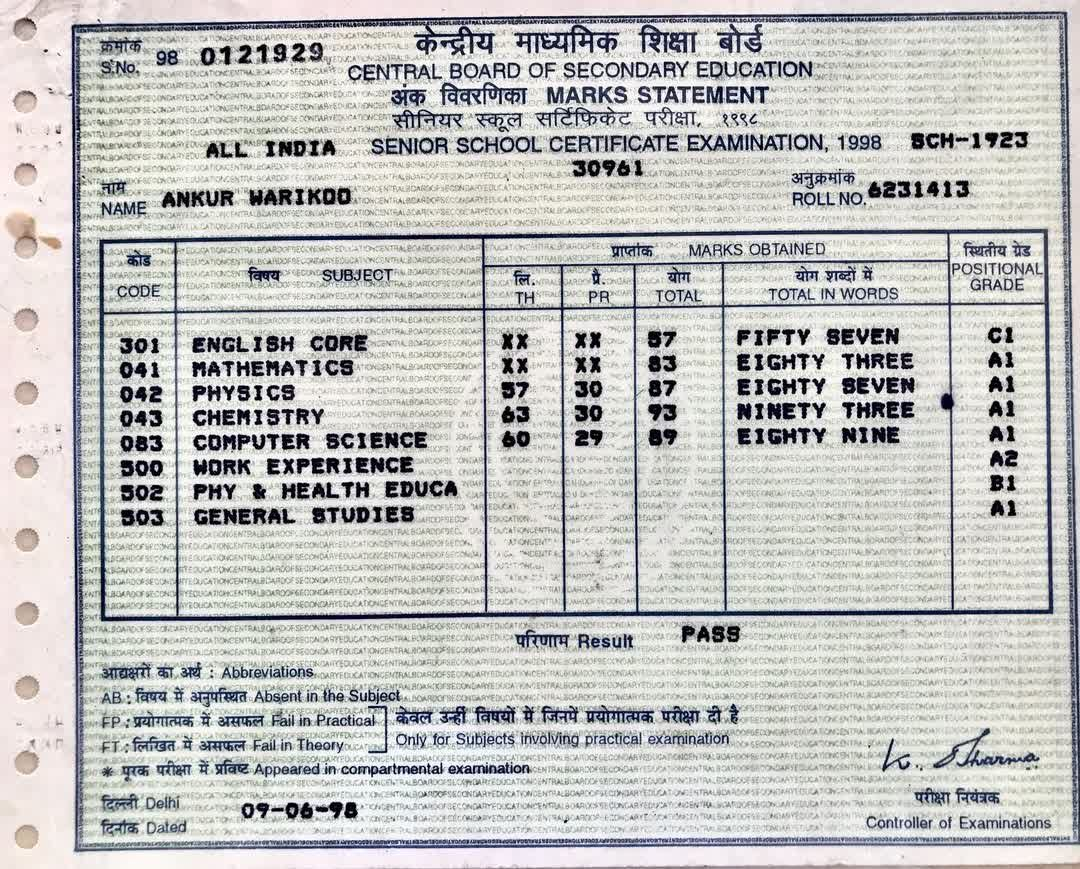 क्रमांक
S.No. 98 0121929
केन्द्रीय माध्यमिक शिक्षा बोर्ड
CENTRAL BOARD OF SECONDARY EDUCATION
अंक विवरणिका MARKS STATEMENT
सीनियर स्कूल सर्टिफिकेट परीक्षा, १९९८
ALL INDIA SENIOR SCHOOL CERTIFICATE EXAMINATION, 1998 SCH-1923
30961
नाम
NAME ANKUR WARIKOO
अनुक्रमांक
ROLL NO. 6231413
कोड विषय SUBJECT प्राप्तांक MARKS OBTAINED स्थितीय ग्रेड
CODE लि. प्रै. योग योग शब्दों में POSITIONAL
TH PR TOTAL TOTAL IN WORDS GRADE
301 ENGLISH CORE XX XX 57 FIFTY SEVEN C1
041 MATHEMATICS XX XX 83 EIGHTY THREE A1
042 PHYSICS 57 30 87 EIGHTY SEVEN A1
043 CHEMISTRY 63 30 93 NINETY THREE A1
083 COMPUTER SCIENCE 60 29 89 EIGHTY NINE A1
500 WORK EXPERIENCE A2
502 PHY & HEALTH EDUCA B1
503 GENERAL STUDIES A1
परिणाम Result PASS
आद्यक्षरों का अर्थ : Abbreviations
AB : विषय में अनुपस्थित Absent in the Subject
FP : प्रयोगात्मक में असफल Fail in Practical केवल उन्हीं विषयों में जिनमें प्रयोगात्मक परीक्षा दी है
FT : लिखित में असफल Fail in Theory Only for Subjects involving practical examination
* पूरक परीक्षा में प्रविष्ट Appeared in compartmental examination
K. Sharma
दिल्ली Delhi
दिनांक Dated 09-06-98
परीक्षा नियंत्रक
Controller of Examinations